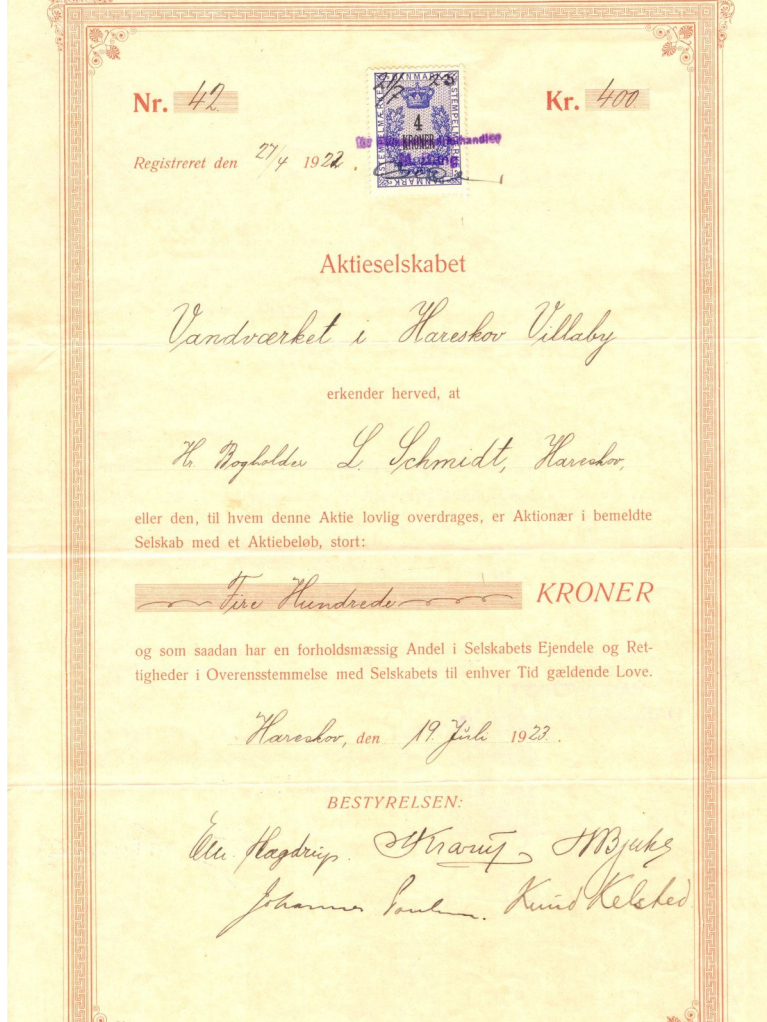 Nr. 42
Kr. 400
DANMARK
STEMPELMÆRKE
4
KRONER
DANMARK
Registreret den 27/4 1922.
Aktieselskabet
Vandværket i Hareskov Villaby
erkender herved, at
Hr. Bogholder L. Schmidt, Hareskov,
eller den, til hvem denne Aktie lovlig overdrages, er Aktionær i bemeldte
Selskab med et Aktiebeløb, stort:
Fire Hundrede KRONER
og som saadan har en forholdsmæssig Andel i Selskabets Ejendele og Ret-
tigheder i Overensstemmelse med Selskabets til enhver Tid gældende Love.
Hareskov, den 19. Juli 1923.
BESTYRELSEN:
Hagdrup. Krarup
Johannes Poulsen. Knud Kelsted